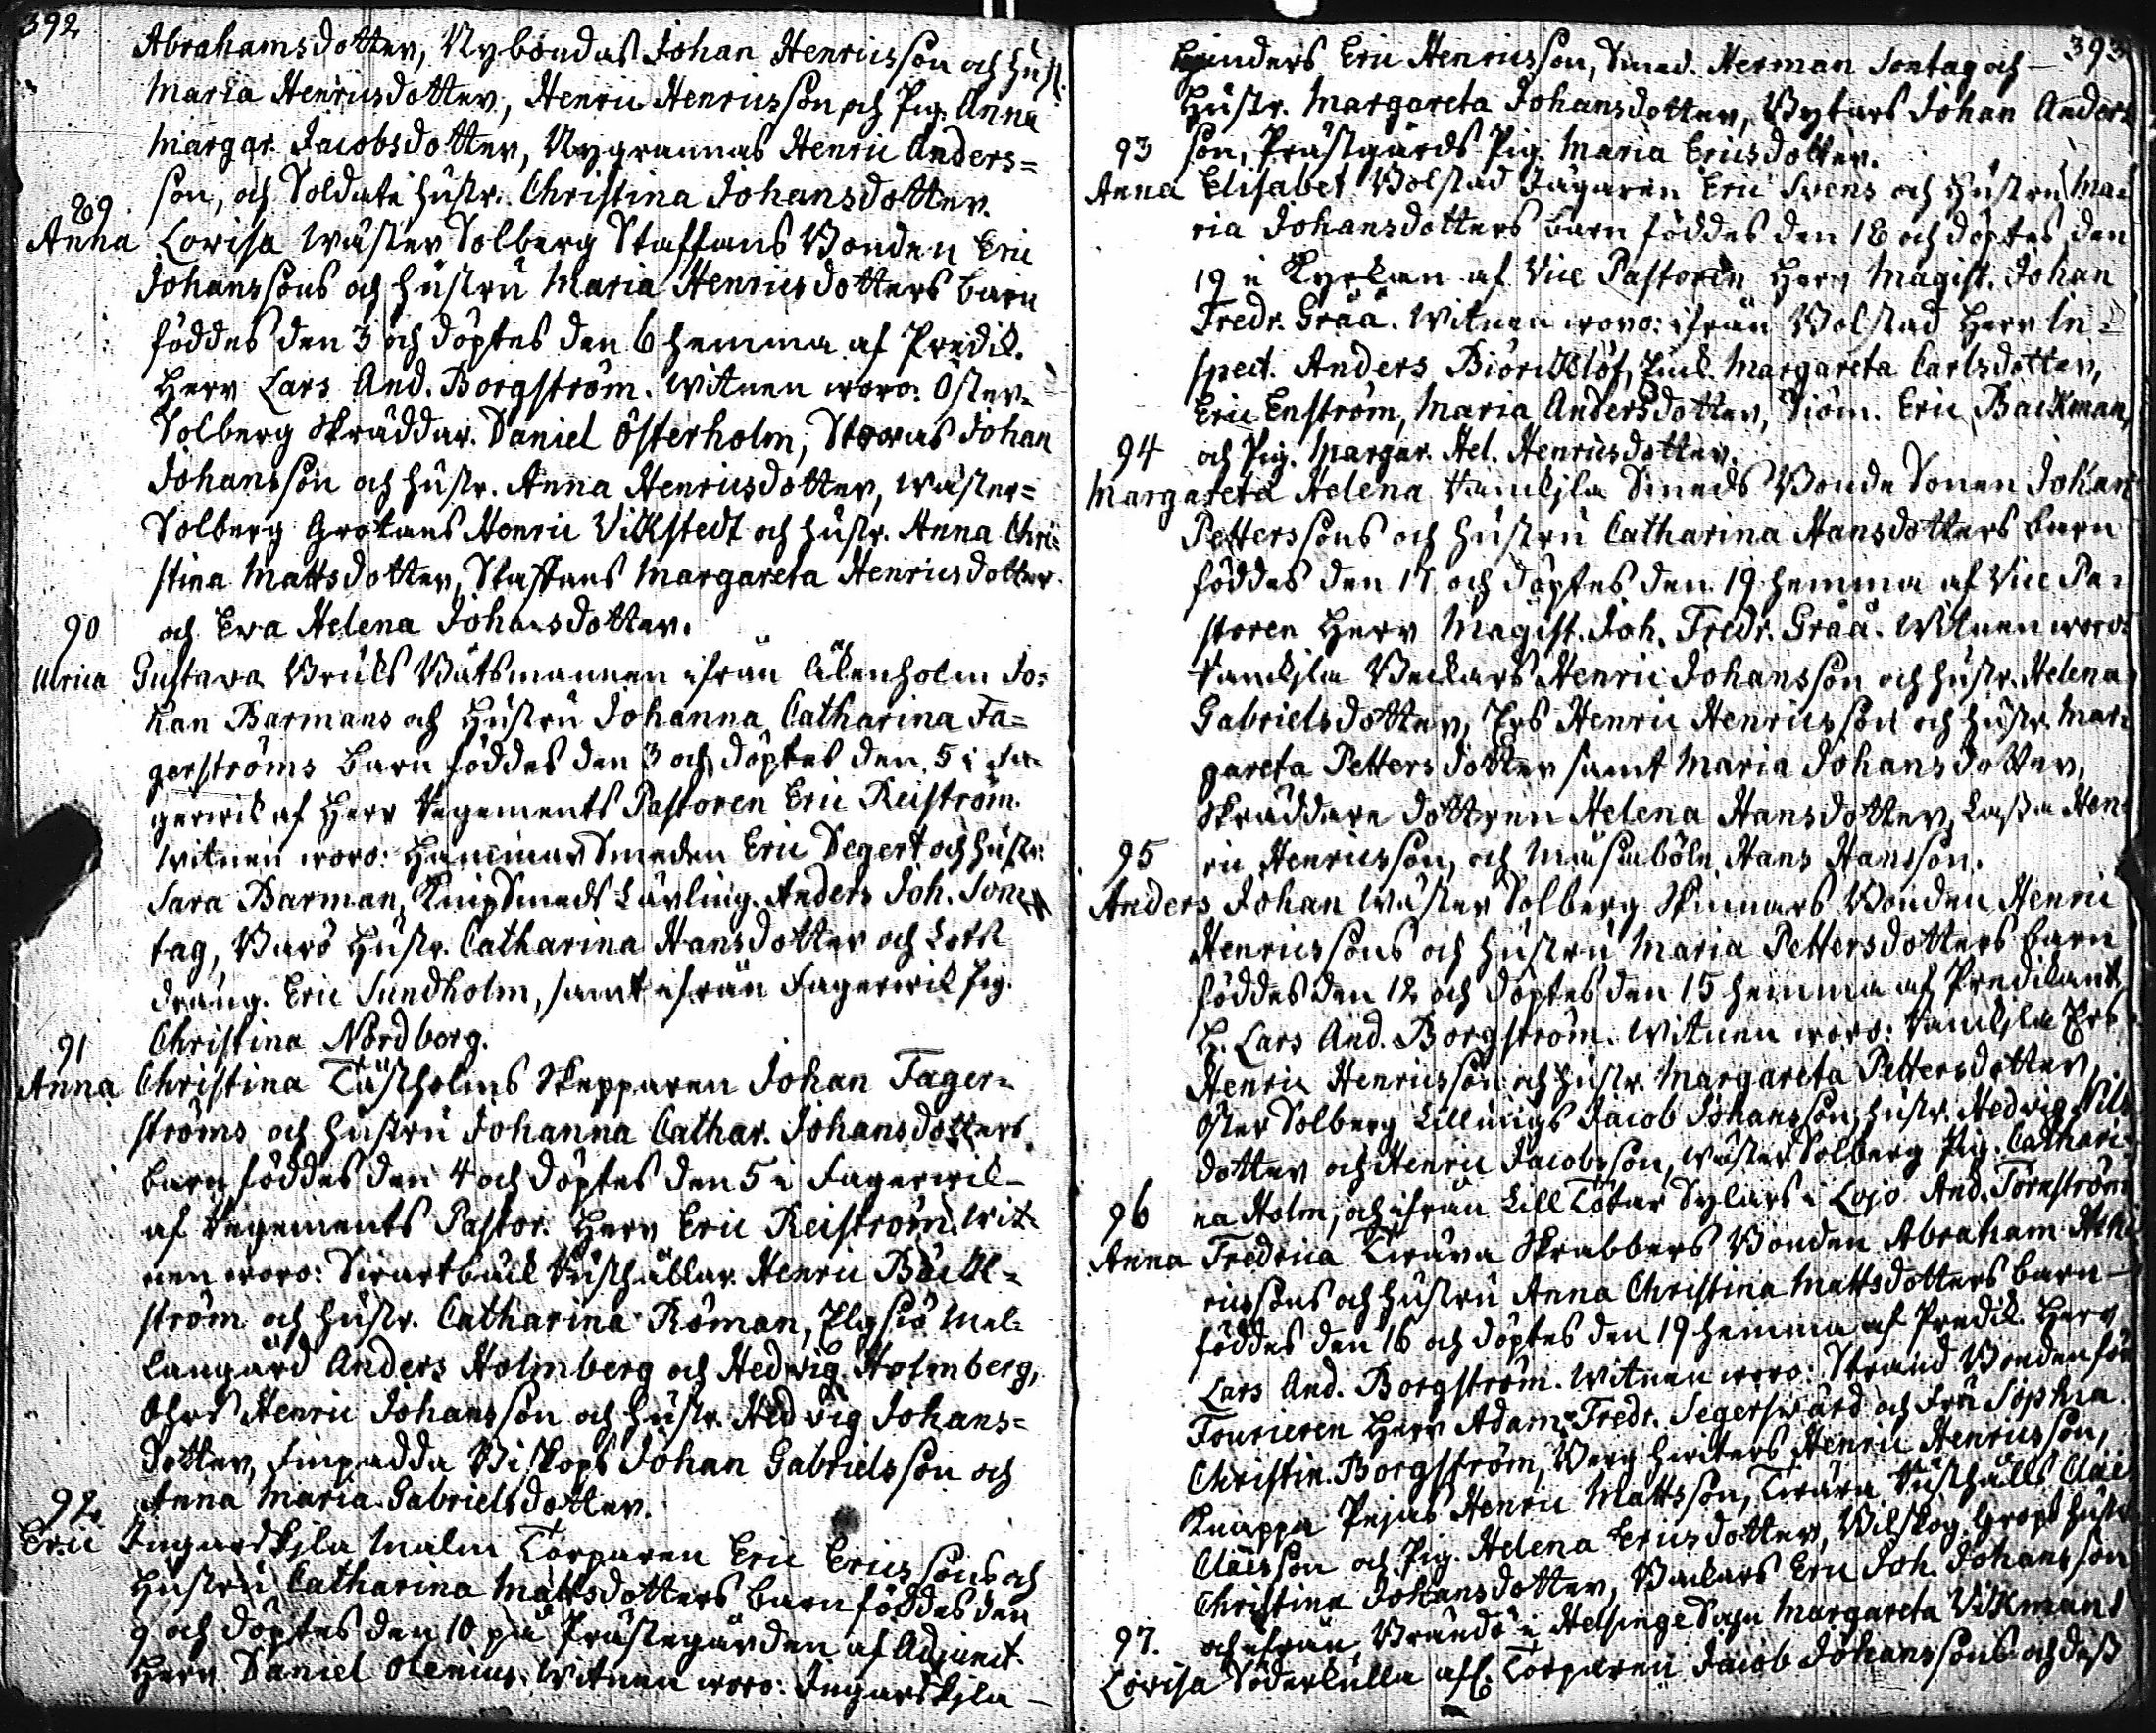 392
Abrahamsdotter, Nybondas Johan Henricsson och Hust.
Maria Henricsdotter, Henric Henricsson och Pig. Anna
Margar. Jacobsdotter, Nygrannas Henric Anders=
son, och Soldate hustr. Christina Johansdotter.
89
Anna Lovisa Wäster Solberg Staffans Bonden Eric
Johanssons och hustru Maria Henricsdotters barn
föddes den 3 och döptes den 6 hemma af Predik.
Herr Lars And. Borgström. Witnen woro: Öster=
Solberg Skräddar. Daniel Österholm, Storas Johan
Johansson och hustr. Anna Henricsdotter, Wäster=
Solberg Grotans Henric Vikstedt och hustr. Anna Chri=
stina Mattsdotter, Staffans Margareta Henricsdotter
och Eva Helena Johansdotter.
90
Ulrica Gustava Bruks Båtsmannen ifrån Ålenholm Jo=
han Barmans och Hustru Johanna Catharina Fa=
gerströms barn föddes den 3 och döptes den 5 i Fa=
gerwik af Herr Regements Pastoren Eric Reiström.
Witnen woro: Hammar Smeden Eric Segert och hustr.
Sara Barman, Knip Smeds Lärling. Anders Joh. Son=
tag, Barö Hustr. Catharina Hansdotter och Lots
dräng. Eric Sundholm, samt ifrån Fagerwik Pig.
Christina Nordborg.
91
Anna Christina Täktholms Skepparen Johan Fager=
ströms och hustru Johanna Cathar. Johansdotters
barn föddes den 4 och döptes den 5 i Fagerwik
af Regements Pastor. Herr Eric Reiström. Wit=
nen woro: Swartbäck Rusthållar. Henric Bäck=
ström och hustr. Catharina Roman, Elgsiö Mel=
langård Anders Holmberg och Hedvig Holmberg,
Ohrs Henric Johansson och hustr. Hedvig Johans=
dotter, Finpadda Biskops Johan Gabrielsson och
Anna Maria Gabrielsdotter.
92
Eric Ingarskila Malm Torparen Eric Ericssons och
Hustru Catharina Mattsdotters barn föddes den
9 och döptes den 10 på Prästegården af Adjunct.
Herr Daniel Olenius. Witnen woro: Ingarskila
393
Eric Henricsson, Smed. Herman Sontag och
Hustr. Margareta Johansdotter, Bytars Johan Anders
93 son, Prästgårds Pig. Maria Ericsdotter.
Anna Elisabet Bolstad Jägaren Eric Svens och Hustru Ma=
ria Johansdotters barn föddes den 18 och döptes den
19 i Kyrkan af Vice Pastoren Herr Magist. Johan
Fredr. Gråå. Witnen woro: ifrån Bolstad Herr In=
spect. Anders Biörcklöf, Margareta Carlsdotter,
Eric Enström, Maria Andersdotter, Siöm. Eric Backman,
94 och Pig. Margar. Hel. Henricsdotter.
Margareta Helena Rankila Smeds Bonde Sonen Johan
Petterssons och Hustru Catharina Hansdotters barn
föddes den 17 och döptes den 19 hemma af Vice Pa=
storen Herr Magist. Joh. Fredr. Gråå. Witnen woro:
Rankila Backars Henric Johansson och hustr. Helena
Gabrielsdotter, Ers Henric Henricsson och hustr. Mar=
gareta Pettersdotter samt Maria Johansdotter,
Skräddare dottren Helena Hansdotter, Henric
95 Henricsson, och Hans Hansson.
Anders Johan Wäster Solberg Skinnars Bonden Henric
Henricssons och hustru Maria Pettersdotters barn
föddes den 12 och döptes den 15 hemma af Predikant
H. Lars And. Borgström. Witnen woro: Rankila Ers
Henric Henricsson och hustr. Margareta Pettersdotter,
Öster Solberg Lillungs Jacob Johansson, hustr. Hedvig Nils
dotter och Henric Jacobsson, Wäster Solberg Pig. Cathari=
96 na Holm, och ifrån Lill Tötar Sylars i Lojo And. Törnström
Anna Fredrica Tivära Skrabbers Bonden Abraham Hen=
ricssons och hustru Anna Christina Mattsdotters barn
föddes den 16 och döptes den 19 hemma af Predik. Herr
Lars And. Borgström. Witnen woro: Strand Bonden för
Fourieren Herr Adam Fredr. Segersvärd och Fru Sophia
Christin. Borgström, Berg Henric Henricsson,
Knappa Pejas Henric Mattsson, Tivära Rusthålls Claes
Claesson och Pig. Helena Ericsdotter, Wilskog Grops hustr.
Christina Johansdotter, Backars Eric Joh. Johansson
97. och ifrån Brändö i Helsinge Sochn Margareta Vikman
Lovisa Söderkulla afl. Torparen Jacob Johanssons och dess